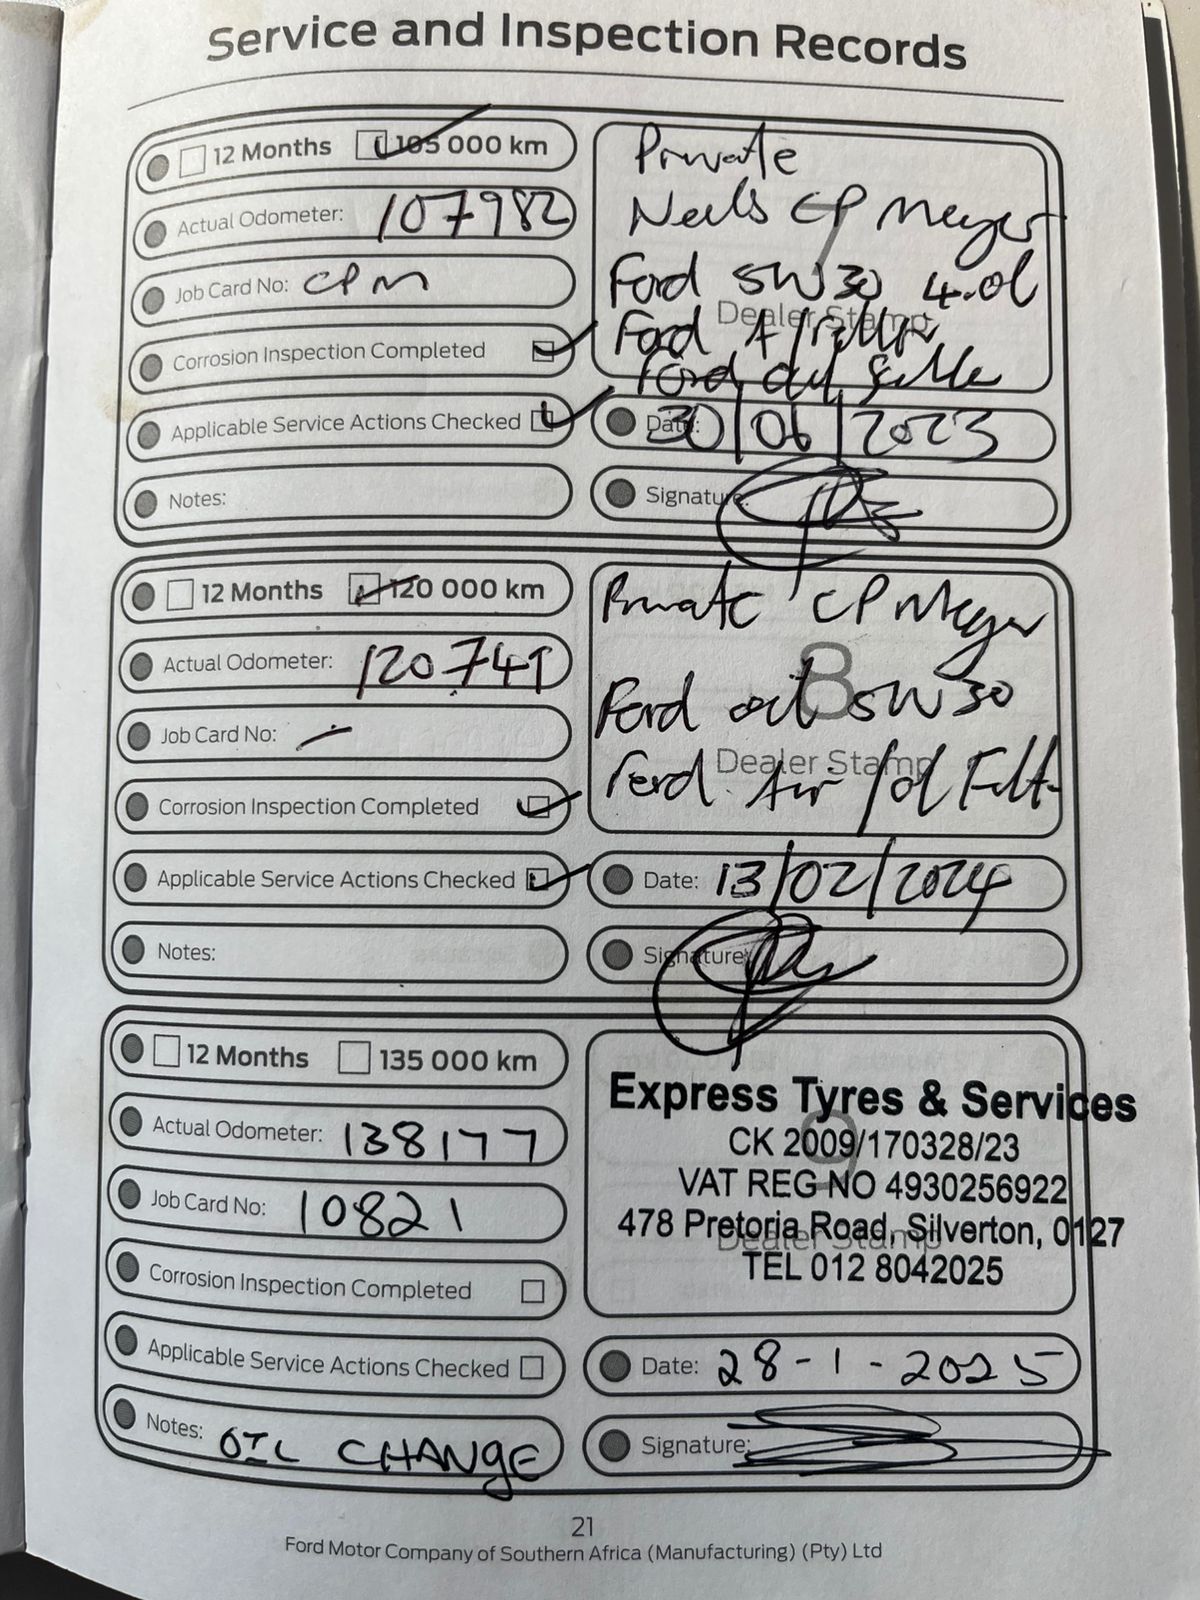 Service and Inspection Records
12 Months 105 000 km
Actual Odometer: 107982
Job Card No: CPM
Corrosion Inspection Completed
Applicable Service Actions Checked
Notes:
Private
Neels CP Meyer
7
Ford 5W30 4.0l
Dealer Stamp
Ford A/Filter
Ford oil
Date: 30/06/2023
Signature:
12 Months 120 000 km
Actual Odometer: 120741
Job Card No: –
Corrosion Inspection Completed
Applicable Service Actions Checked
Notes:
Private CP Meyer
8
Ford oil 5W30
Dealer Stamp
Ford Air/oil Filt
Date: 13/02/2024
Signature:
12 Months 135 000 km
Actual Odometer: 138177
Job Card No: 10821
Corrosion Inspection Completed
Applicable Service Actions Checked
Notes: OIL CHANGE
Express Tyres & Services
9
CK 2009/170328/23
VAT REG NO 4930256922
478 Pretoria Road, Silverton, 0127
Dealer Stamp
TEL 012 8042025
Date: 28-1-2025
Signature:
21
Ford Motor Company of Southern Africa (Manufacturing) (Pty) Ltd